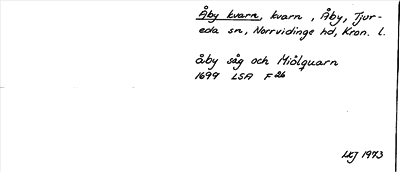 Åby kvarn, kvarn , Åby, Tjur-
eda sn, Norrvidinge hd, Kron. l.
åby såg och Miölquarn
1699 LSA F 26
1973